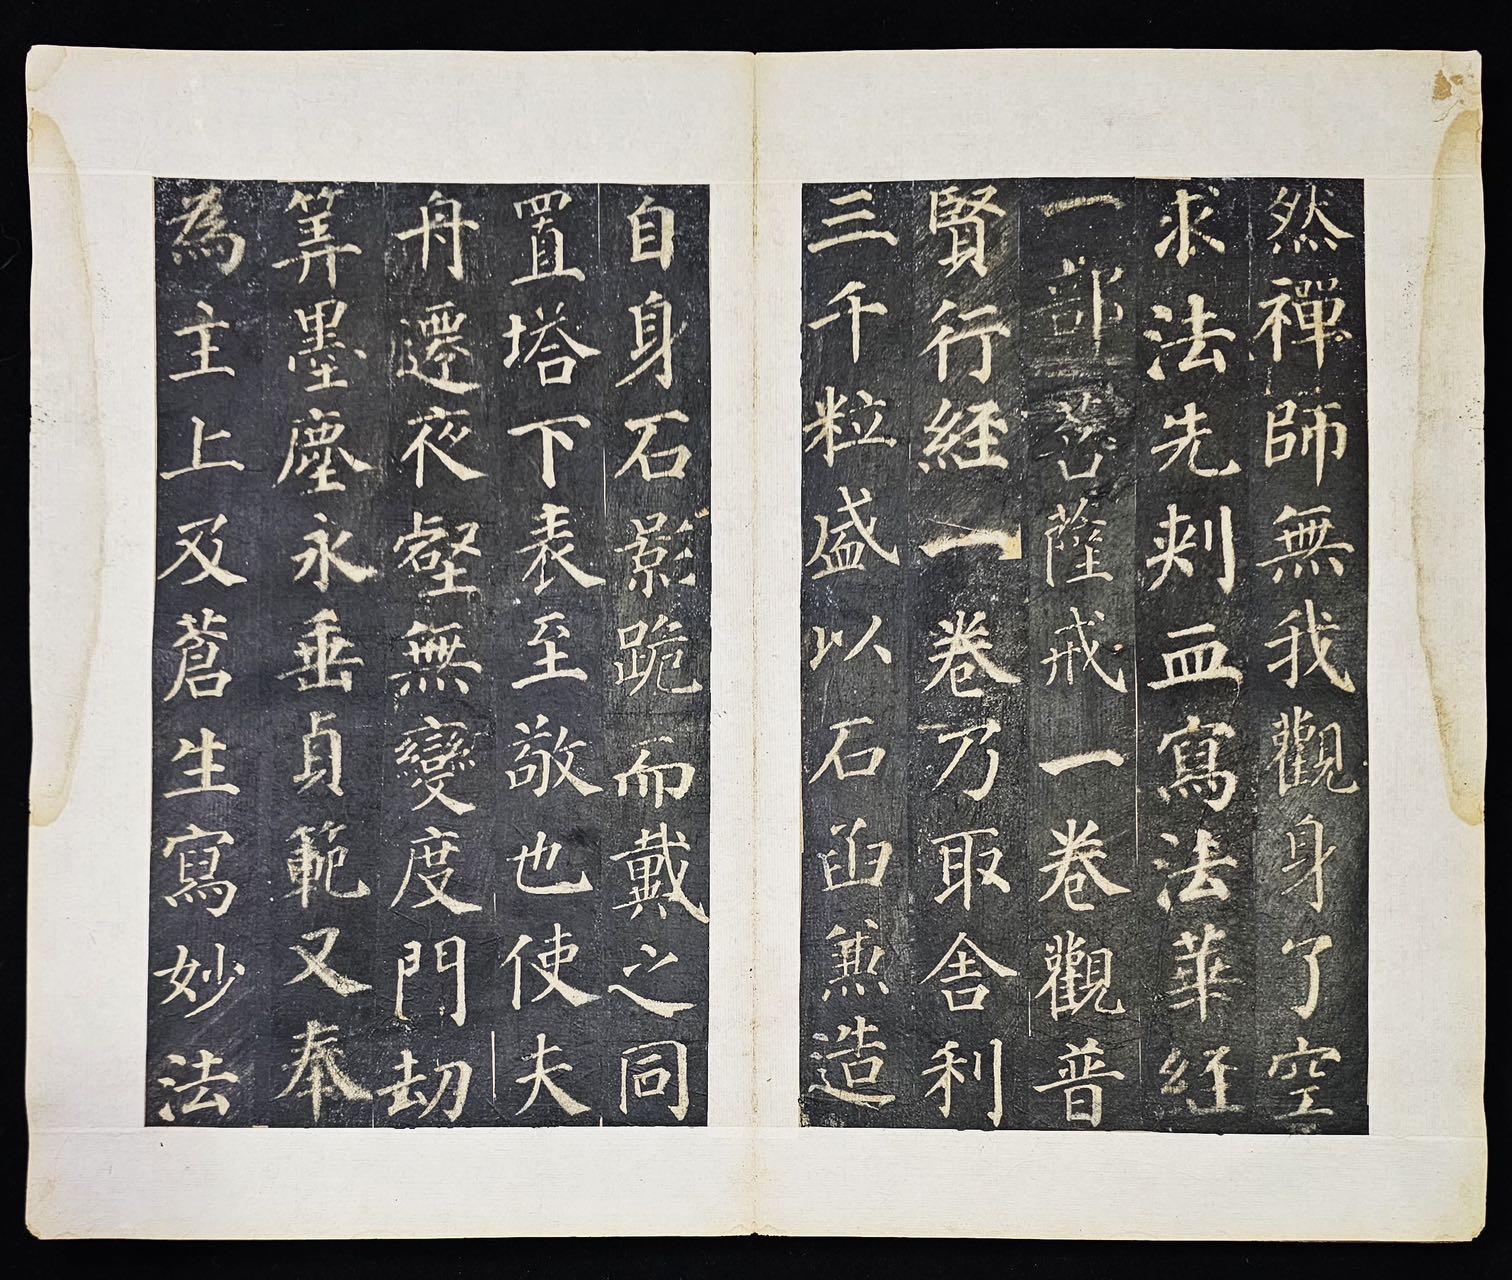 然禪師無我觀身了空
求法先刺血寫法華經
一部菩薩戒一卷觀普
賢行經一卷乃取舍利
三千粒盛以石函兼造
自身石影跪而戴之同
置塔下表至敬也使夫
舟遷夜壑無變度門劫
筭墨塵永垂貞範又奉
為主上及蒼生寫妙法